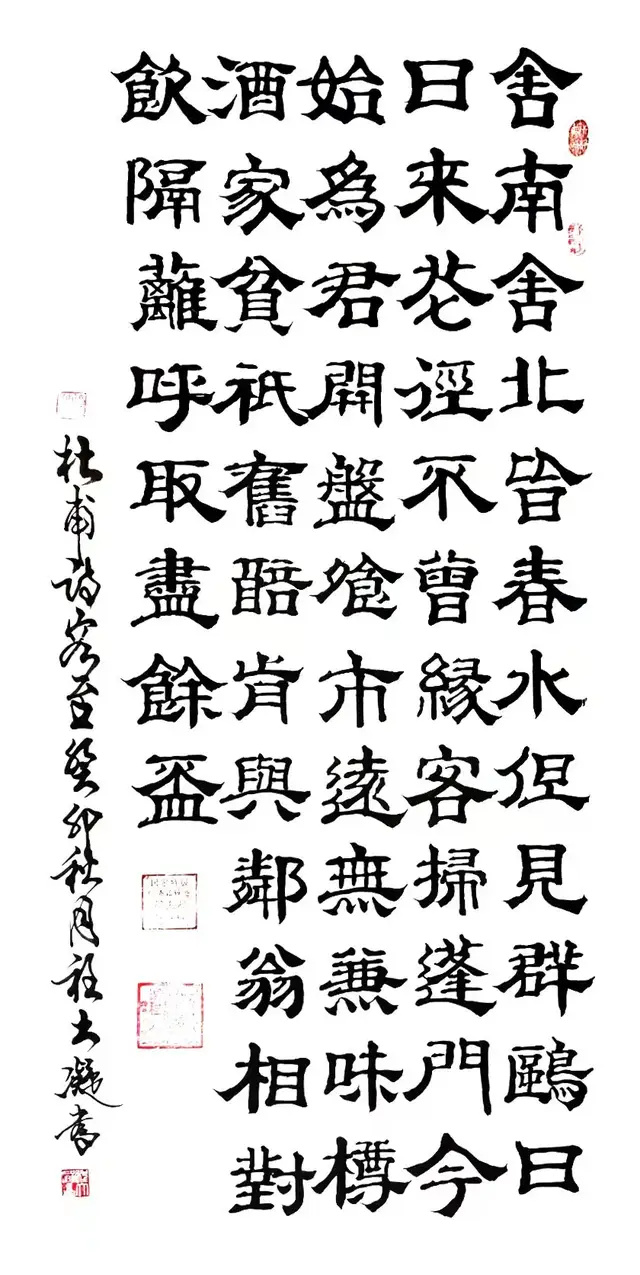 舍南舍北皆春水但見群鷗日
日来花徑不曾緣客掃蓬門今
始為君開盤飧市遠無兼味樽
酒家貧衹舊醅肯與鄰翁相對
飲隔蘺呼取盡餘盃
杜甫詩客至癸卯秋月凝書